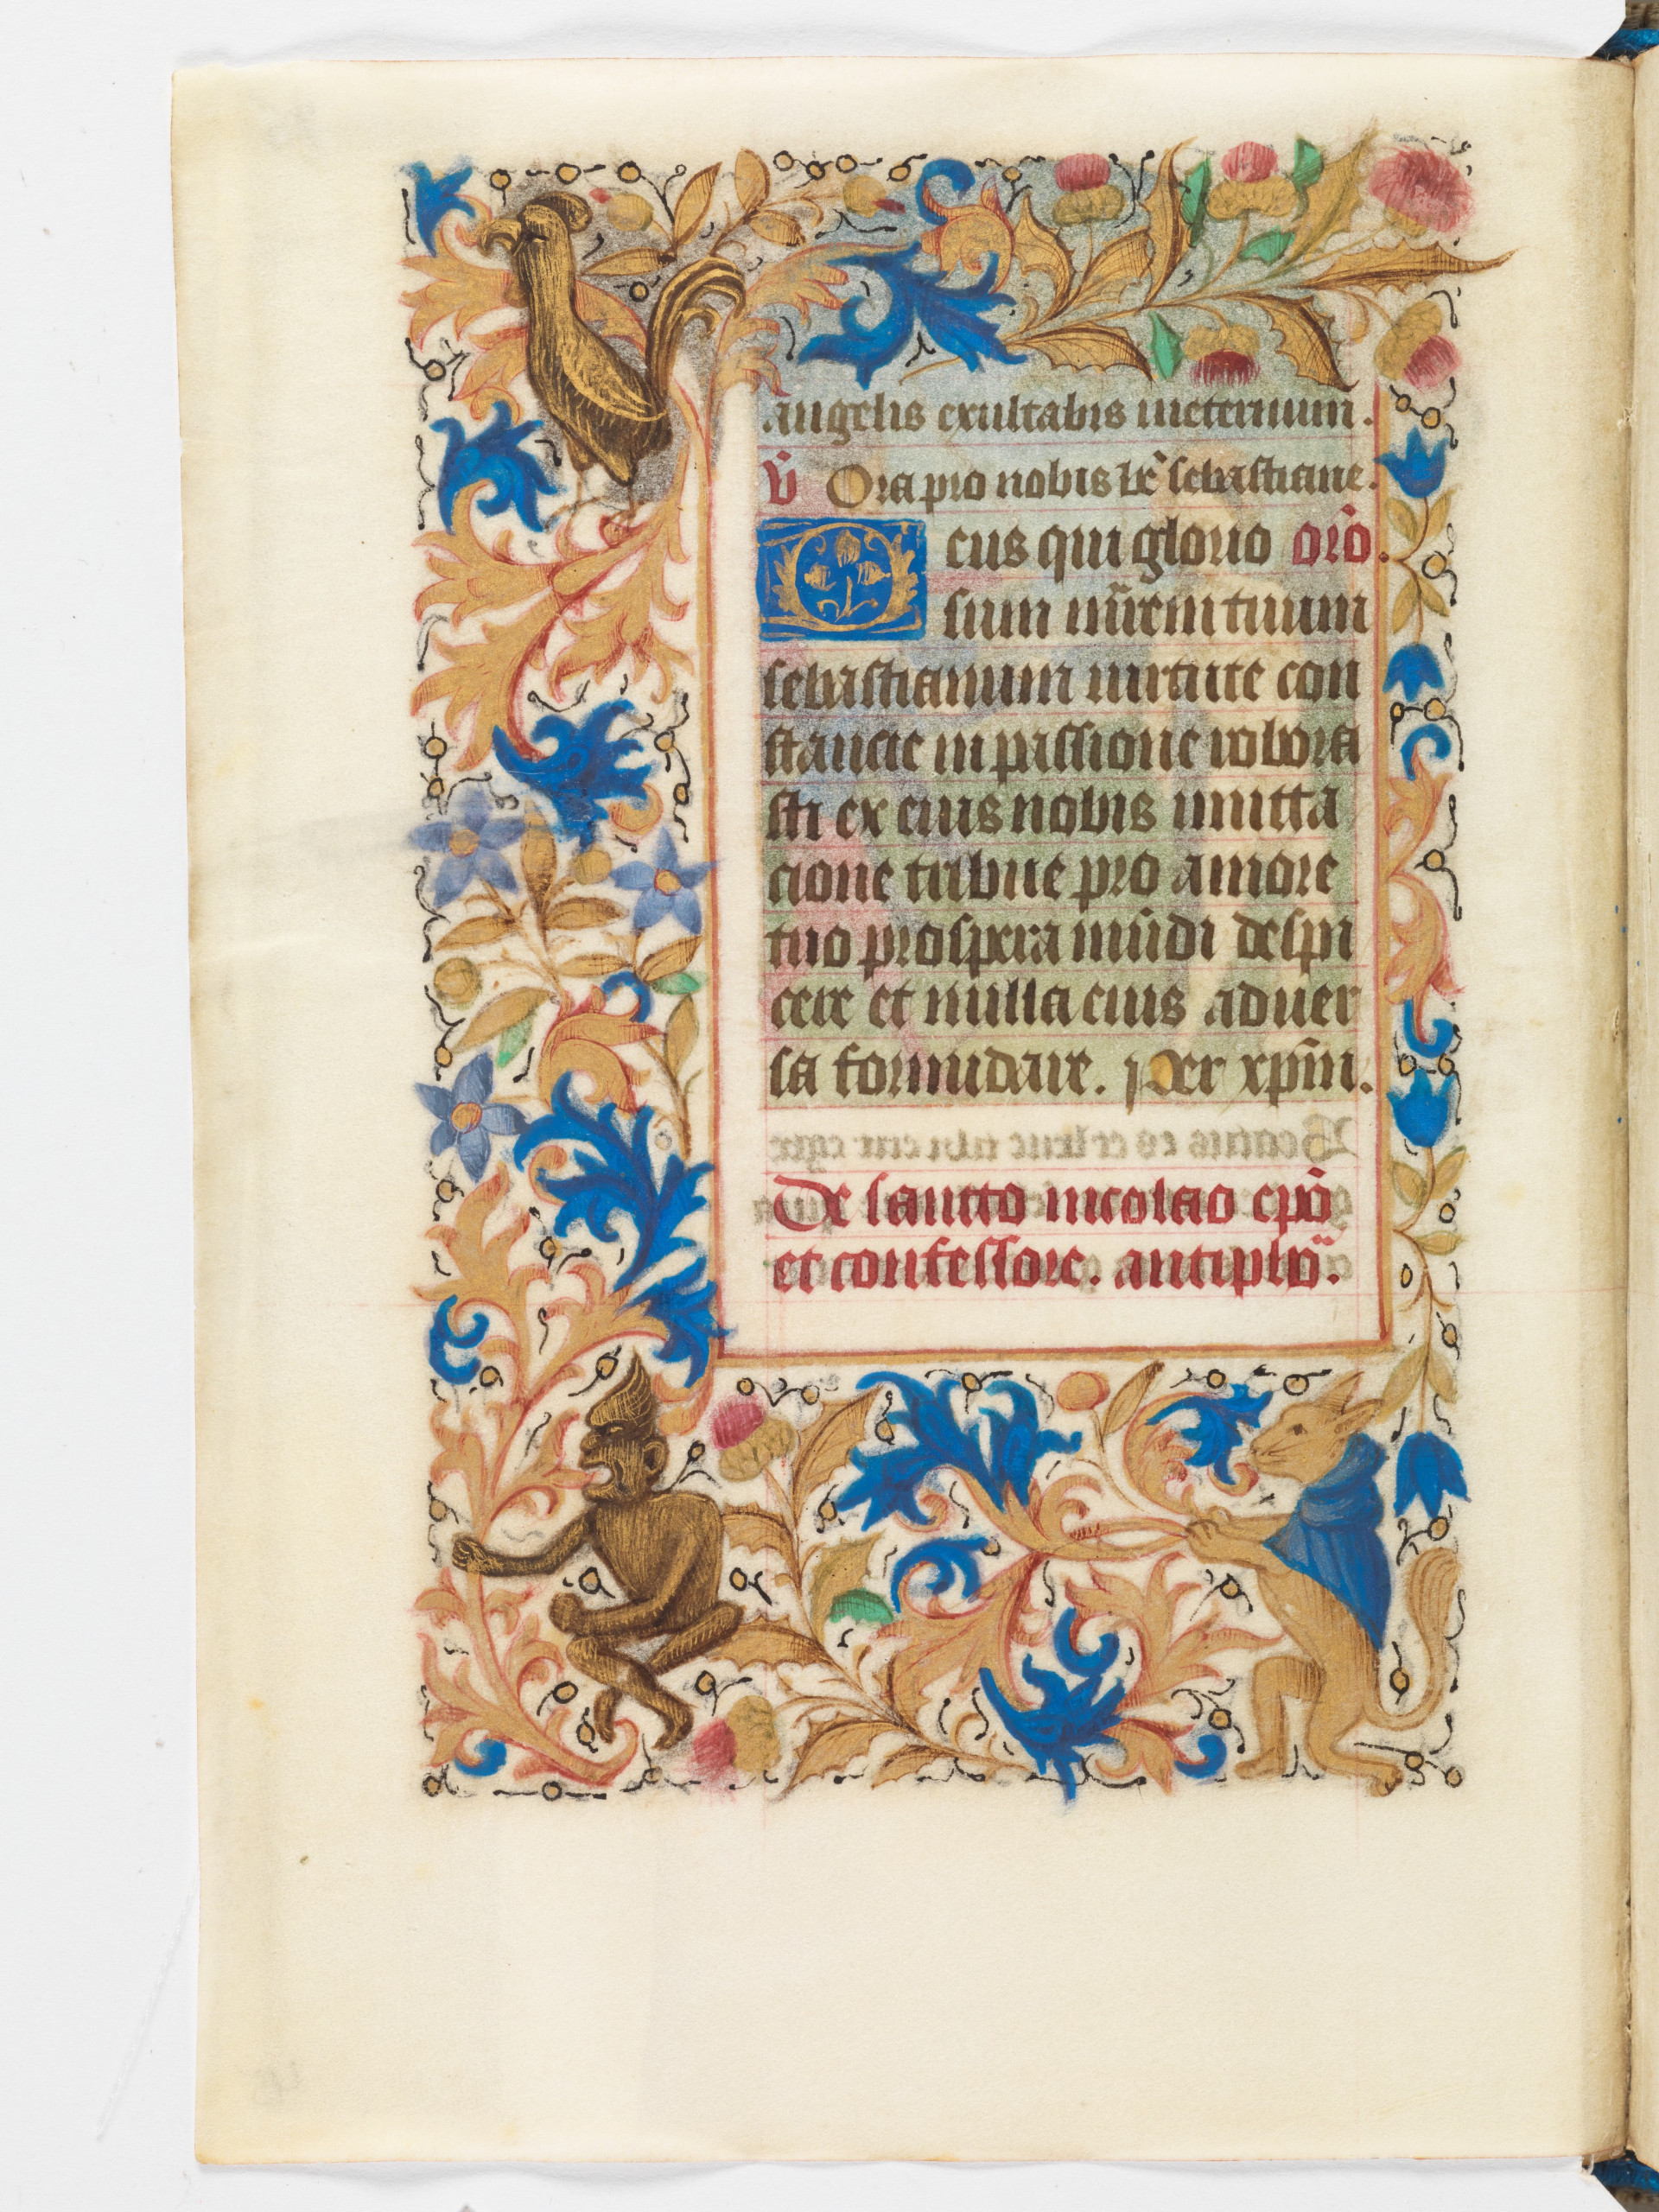 angelis exultabis ineternum.
V̄ Ora pro nobis bē sebastiane.
Deus qui glorio or̄o.
sum m̄r̄em tuum
sebastianum uirtute con
stancie in passione robora
sti ex eius nobis imitta
cione tribue pro amore
tuo prospera mūdi despi
cere et nulla eius aduer
sa formidare. Per xp̄m.
De sancto nicolao ep̄o
et confessore. antiph̄o.